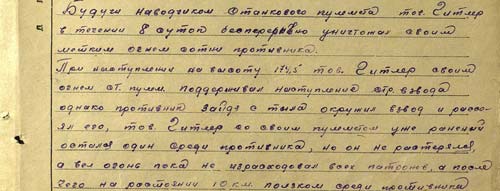 Будучи наводчиком станкового пулемета тов. Гитлер
в течении 8 суток бесперерывно уничтожал своим
метким огнем сотни противника.
При наступлении на высоту 174,5 тов. Гитлер своим
огнем ст. пулем. поддерживал наступление стр. взвода
однако противник зайдя с тыла окружил взвод и рассе-
ял его, тов. Гитлер со своим пулеметом уже раненый
остался один среди противника, но он не растерялся,
а вел огонь пока не израсходовал всех патронов, а после
чего на расстоянии 10 км. ползком среди противника